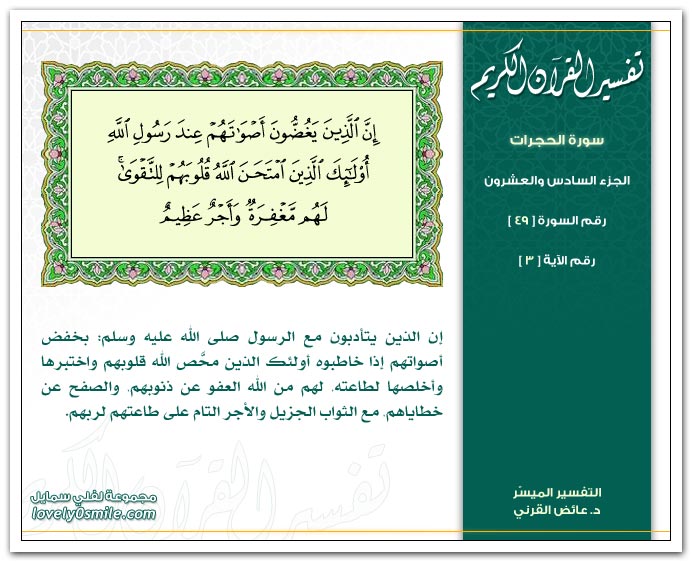 تفسير القرآن الكريم
سورة الحجرات
الجزء السادس والعشرون
رقم السورة [ ٤٩ ]
رقم الآية [ ٣ ]
إِنَّ ٱلَّذِينَ يَغُضُّونَ أَصْوَٰتَهُمْ عِندَ رَسُولِ ٱللَّهِ
أُو۟لَـٰٓئِكَ ٱلَّذِينَ ٱمْتَحَنَ ٱللَّهُ قُلُوبَهُمْ لِلتَّقْوَىٰ ۚ
لَهُم مَّغْفِرَةٌ وَأَجْرٌ عَظِيمٌ
إن الذين يتأدبون مع الرسول صلى الله عليه وسلم؛ بخفض
أصواتهم إذا خاطبوه أولئك الذين محَّص الله قلوبهم واختبرها
وأخلصها لطاعته، لهم من الله العفو عن ذنوبهم، والصفح عن
خطاياهم، مع الثواب الجزيل والأجر التام على طاعتهم لربهم.
التفسير الميسّر
د. عائض القرني
مجموعة لفلي سمايل
lovely0smile.com
تفسير القرآن الكريم